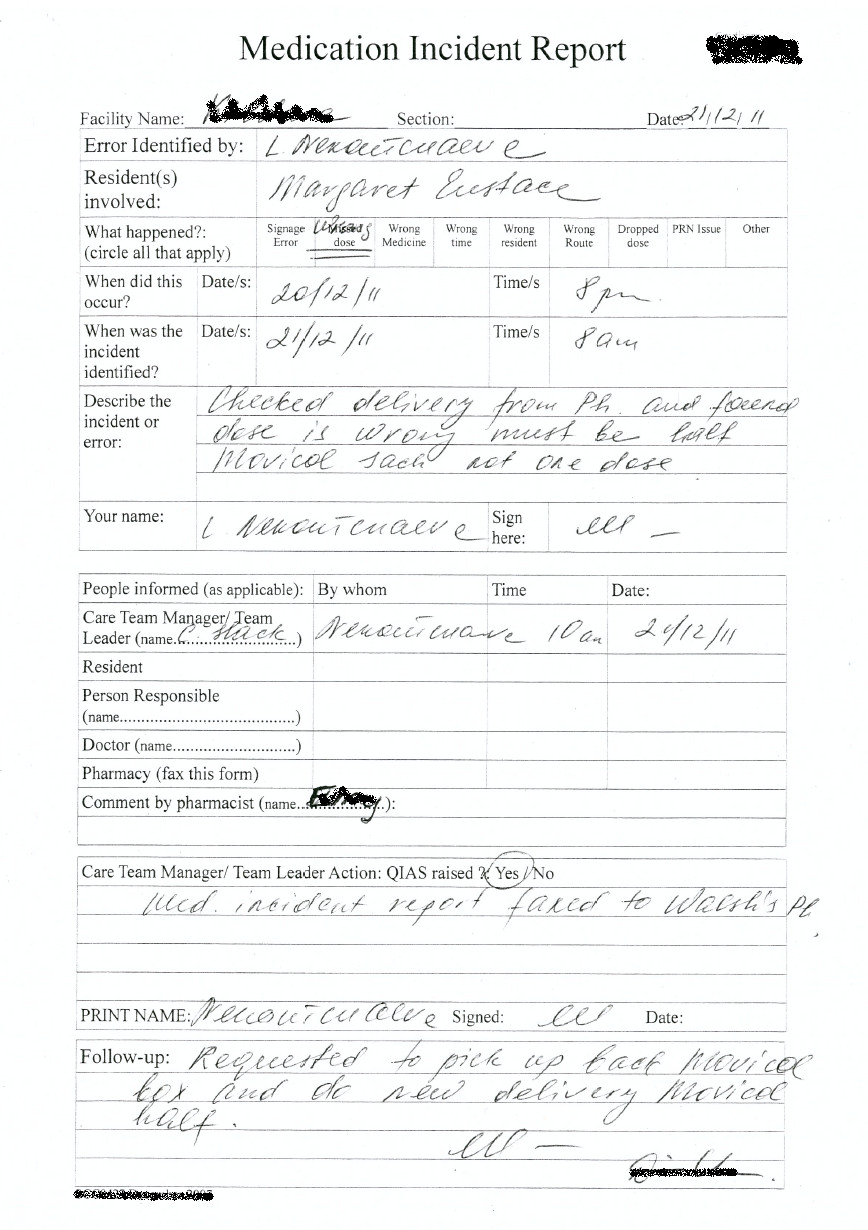 Medication Incident Report
Facility Name: Section: Date: 21/12/11
Error Identified by: L
Resident(s) involved: Margaret Eustace
What happened?: (circle all that apply) Signage Error dose Wrong Medicine Wrong time Wrong resident Wrong Route Dropped dose PRN Issue Other
When did this occur? Date/s: 20/12/11 Time/s 8pm
When was the incident identified? Date/s: 21/12/11 Time/s 8am
Describe the incident or error: Checked delivery from Ph. and found
dose is wrong must be half
Movicol sach not one dose
Your name: L Sign here:
People informed (as applicable): By whom Time Date:
Care Team Manager/ Team
Leader (name.C. Slack) 10am 21/12/11
Resident
Person Responsible
(name........................................)
Doctor (name............................)
Pharmacy (fax this form)
Comment by pharmacist (name.. ..):
Care Team Manager/ Team Leader Action: QIAS raised ? Yes / No
Med. incident report faxed to Walsh's Ph
PRINT NAME: Signed: Date:
Follow-up: Requested to pick up back Movicol
box and do new delivery Movicol
half.